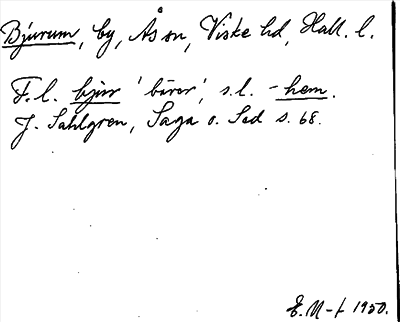 Bjurum, by, Ås sn, Viske hd, Hall. l.
F.l. bjur 'bäver', s.l. -hem.
J. Sahlgren, Saga o. Sed s. 68.
E. M-t 1950.